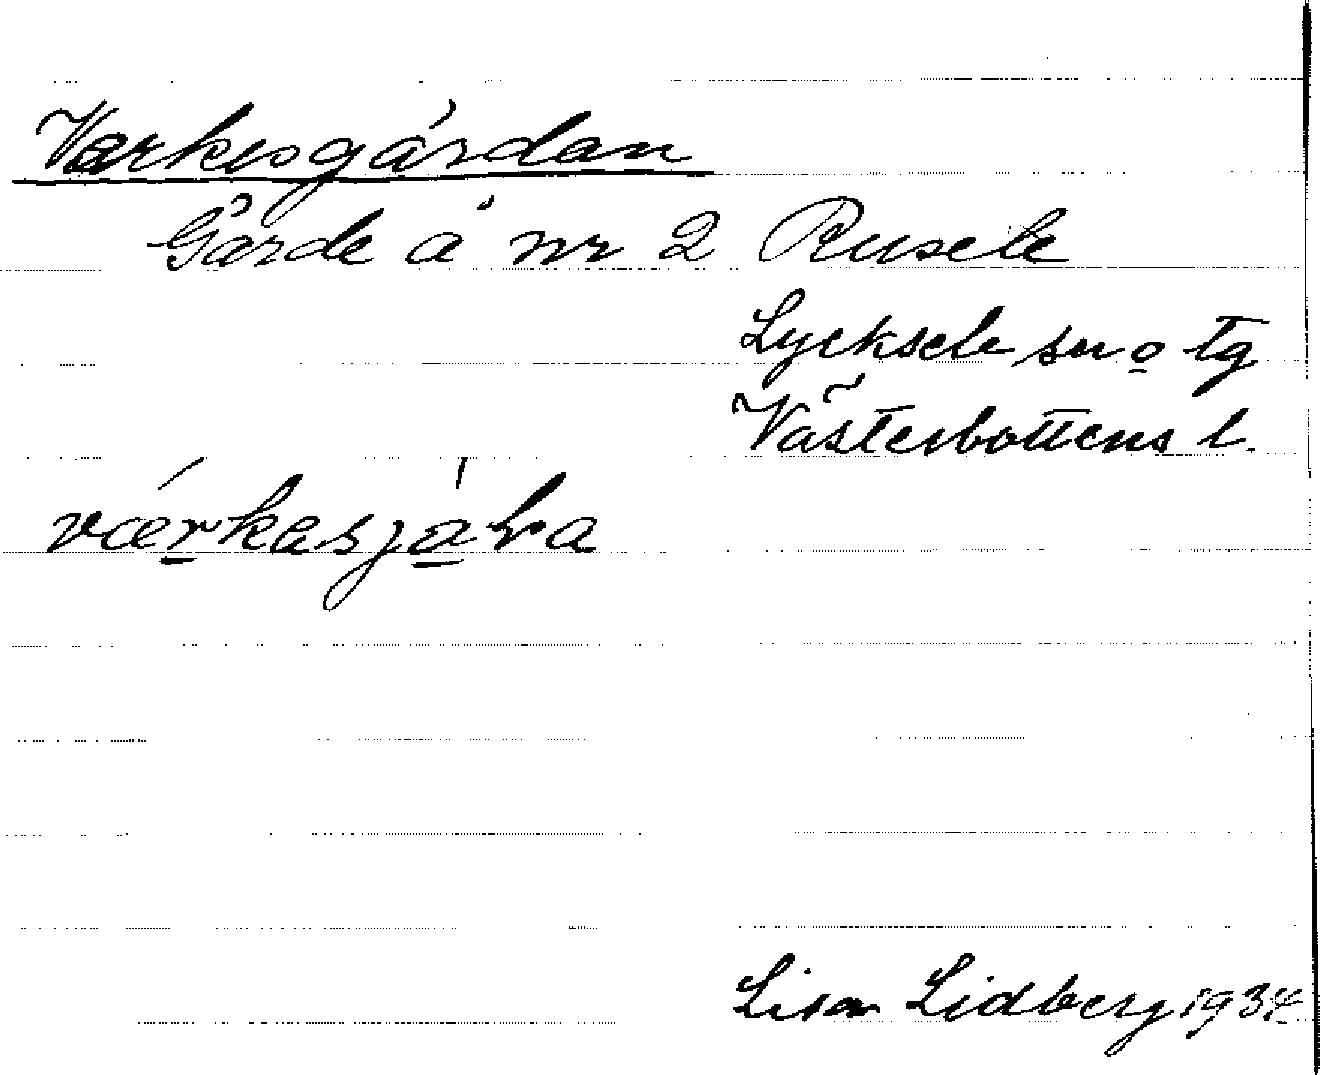 Värkesgårdan
Gärde å nr 2 Rusele
Lycksele sn o tg
Västerbottens l.
Lisa Lidberg 1934